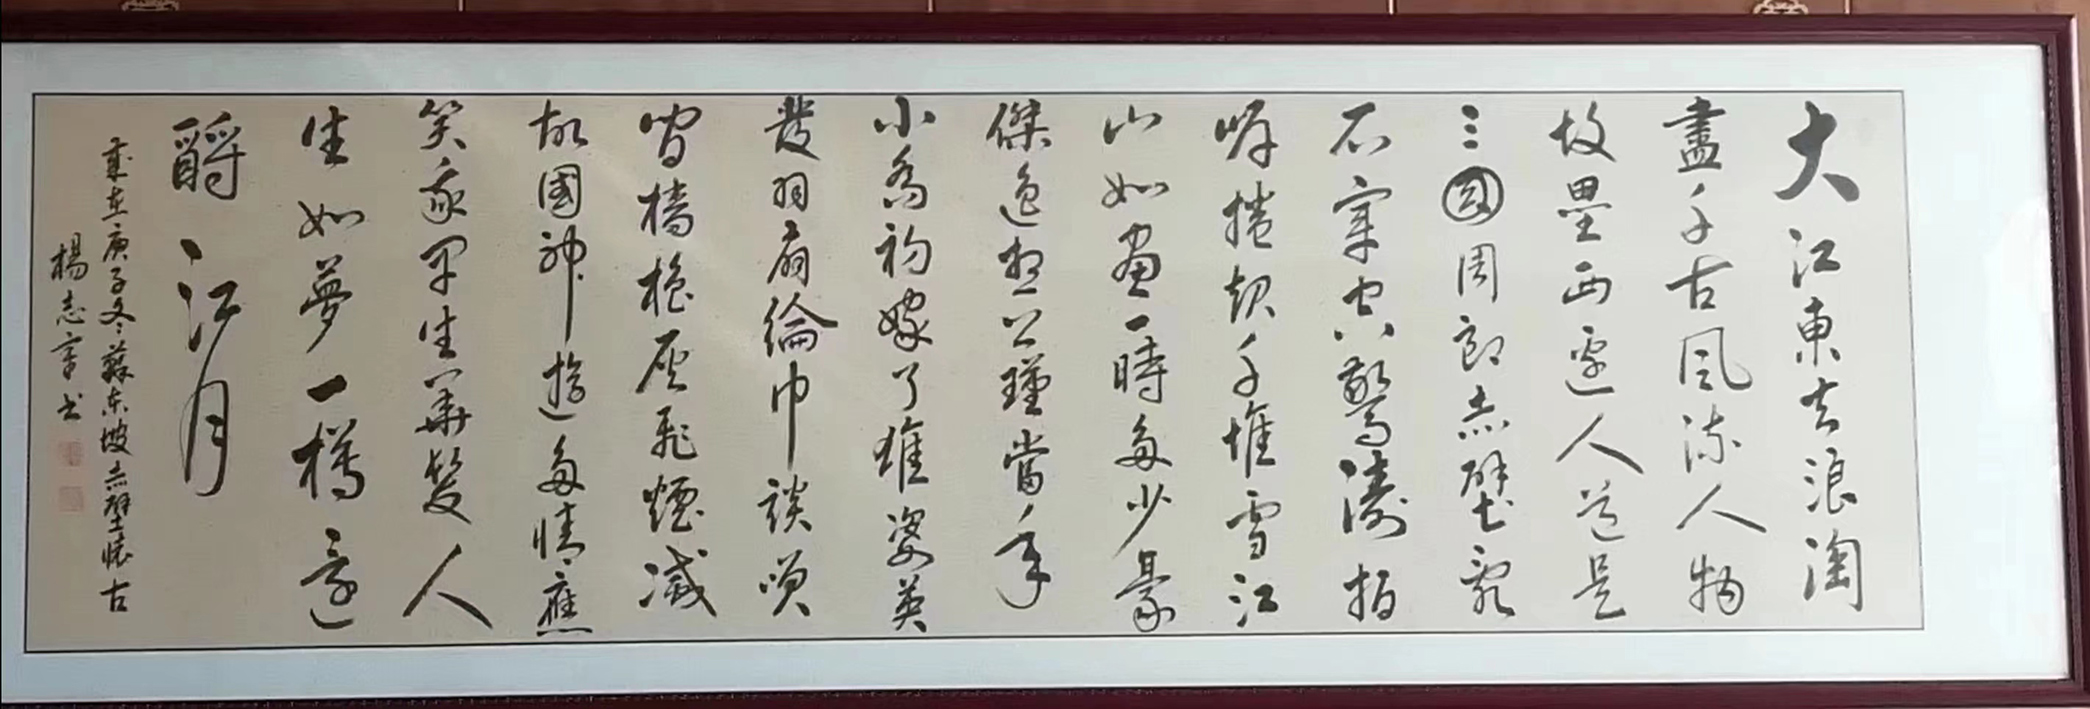 大江東去浪淘
盡千古風流人物
故壘西邊人道是
三國周郎赤壁亂
石穿空驚濤拍
岸捲起千堆雪江
山如畫一時多少豪
傑遙想公瑾當年
小喬初嫁了雄姿英
發羽扇綸巾談笑
間檣櫓灰飛煙滅
故國神遊多情應
笑我早生華髮人
生如夢一樽還
酹江月
歲在庚子冬蘇东坡赤壁懷古
楊志章书